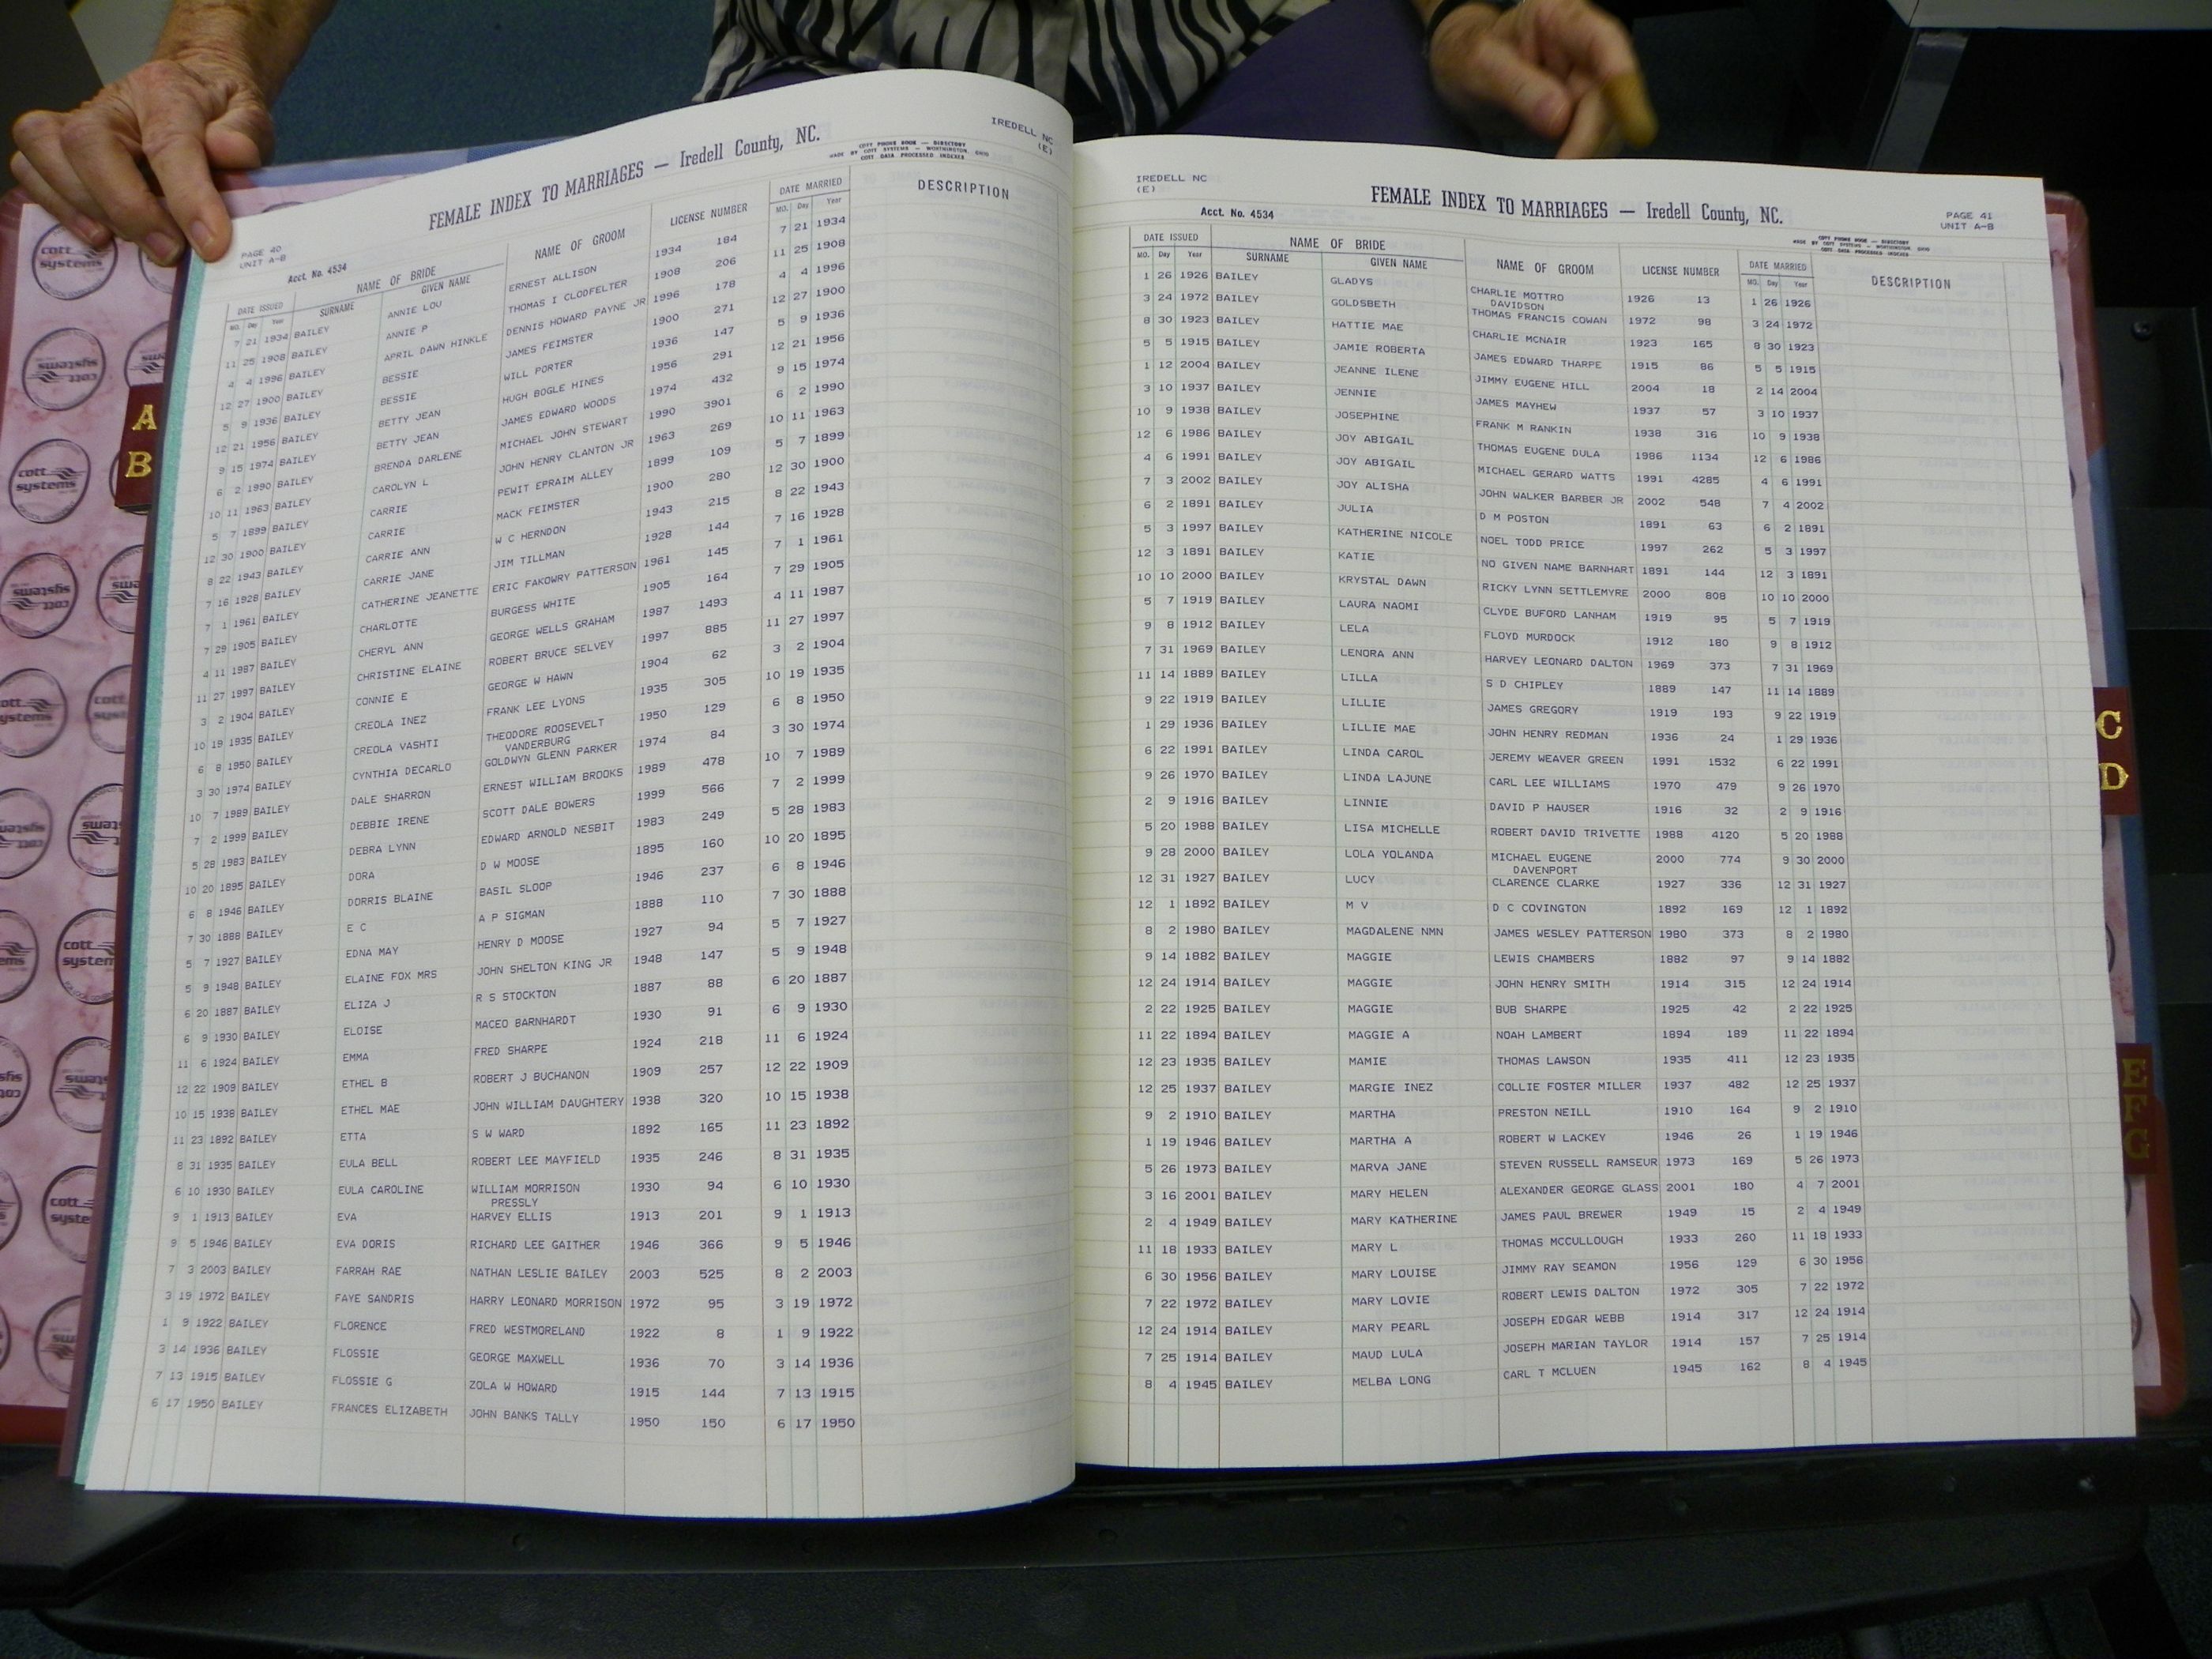 IREDELL NC
(E)
FEMALE INDEX TO MARRIAGES — Iredell County, NC.
COTT PHONE BOOK — DIRECTORY
MADE BY COTT SYSTEMS — WORTHINGTON, OHIO
COTT DATA PROCESSED INDEXES
PAGE 40
UNIT A-B
Acct. No. 4534
DATE ISSUED NAME OF BRIDE NAME OF GROOM LICENSE NUMBER DATE MARRIED DESCRIPTION
MO. Day Year SURNAME GIVEN NAME MO. Day Year
7 21 1934 BAILEY ANNIE LOU ERNEST ALLISON 1934 184 7 21 1934
11 25 1908 BAILEY ANNIE P THOMAS I CLODFELTER 1908 206 11 25 1908
4 4 1996 BAILEY APRIL DAWN HINKLE DENNIS HOWARD PAYNE JR 1996 178 4 4 1996
12 27 1900 BAILEY BESSIE JAMES FEIMSTER 1900 271 12 27 1900
5 9 1936 BAILEY BESSIE WILL PORTER 1936 147 5 9 1936
12 21 1956 BAILEY BETTY JEAN HUGH BOGLE HINES 1956 291 12 21 1956
9 15 1974 BAILEY BETTY JEAN JAMES EDWARD WOODS 1974 432 9 15 1974
6 2 1990 BAILEY BRENDA DARLENE MICHAEL JOHN STEWART 1990 3901 6 2 1990
10 11 1963 BAILEY CAROLYN L JOHN HENRY CLANTON JR 1963 269 10 11 1963
5 7 1899 BAILEY CARRIE PEWIT EPRAIM ALLEY 1899 109 5 7 1899
12 30 1900 BAILEY CARRIE MACK FEIMSTER 1900 280 12 30 1900
8 22 1943 BAILEY CARRIE ANN W C HERNDON 1943 215 8 22 1943
7 16 1928 BAILEY CARRIE JANE JIM TILLMAN 1928 144 7 16 1928
7 1 1961 BAILEY CATHERINE JEANETTE ERIC FAKOWRY PATTERSON 1961 145 7 1 1961
7 29 1905 BAILEY CHARLOTTE BURGESS WHITE 1905 164 7 29 1905
4 11 1987 BAILEY CHERYL ANN GEORGE WELLS GRAHAM 1987 1493 4 11 1987
11 27 1997 BAILEY CHRISTINE ELAINE ROBERT BRUCE SELVEY 1997 885 11 27 1997
3 2 1904 BAILEY CONNIE E GEORGE W HAWN 1904 62 3 2 1904
10 19 1935 BAILEY CREOLA INEZ FRANK LEE LYONS 1935 305 10 19 1935
6 8 1950 BAILEY CREOLA VASHTI THEODORE ROOSEVELT 1950 129 6 8 1950
VANDERBURG
3 30 1974 BAILEY CYNTHIA DECARLO GOLDWYN GLENN PARKER 1974 84 3 30 1974
10 7 1989 BAILEY DALE SHARRON ERNEST WILLIAM BROOKS 1989 478 10 7 1989
7 2 1999 BAILEY DEBBIE IRENE SCOTT DALE BOWERS 1999 566 7 2 1999
5 28 1983 BAILEY DEBRA LYNN EDWARD ARNOLD NESBIT 1983 249 5 28 1983
10 20 1895 BAILEY DORA D W MOOSE 1895 160 10 20 1895
6 8 1946 BAILEY DORRIS BLAINE BASIL SLOOP 1946 237 6 8 1946
7 30 1888 BAILEY E C A P SIGMAN 1888 110 7 30 1888
5 7 1927 BAILEY EDNA MAY HENRY D MOOSE 1927 94 5 7 1927
5 9 1948 BAILEY ELAINE FOX MRS JOHN SHELTON KING JR 1948 147 5 9 1948
6 20 1887 BAILEY ELIZA J R S STOCKTON 1887 88 6 20 1887
6 9 1930 BAILEY ELOISE MACEO BARNHARDT 1930 91 6 9 1930
11 6 1924 BAILEY EMMA FRED SHARPE 1924 218 11 6 1924
12 22 1909 BAILEY ETHEL B ROBERT J BUCHANON 1909 257 12 22 1909
10 15 1938 BAILEY ETHEL MAE JOHN WILLIAM DAUGHTERY 1938 320 10 15 1938
11 23 1892 BAILEY ETTA S W WARD 1892 165 11 23 1892
8 31 1935 BAILEY EULA BELL ROBERT LEE MAYFIELD 1935 246 8 31 1935
6 10 1930 BAILEY EULA CAROLINE WILLIAM MORRISON 1930 94 6 10 1930
PRESSLY
9 1 1913 BAILEY EVA HARVEY ELLIS 1913 201 9 1 1913
9 5 1946 BAILEY EVA DORIS RICHARD LEE GAITHER 1946 366 9 5 1946
7 3 2003 BAILEY FARRAH RAE NATHAN LESLIE BAILEY 2003 525 8 2 2003
3 19 1972 BAILEY FAYE SANDRIS HARRY LEONARD MORRISON 1972 95 3 19 1972
1 9 1922 BAILEY FLORENCE FRED WESTMORELAND 1922 8 1 9 1922
3 14 1936 BAILEY FLOSSIE GEORGE MAXWELL 1936 70 3 14 1936
7 13 1915 BAILEY FLOSSIE G ZOLA W HOWARD 1915 144 7 13 1915
6 17 1950 BAILEY FRANCES ELIZABETH JOHN BANKS TALLY 1950 150 6 17 1950
IREDELL NC
(E)
FEMALE INDEX TO MARRIAGES — Iredell County, NC.
Acct. No. 4534
PAGE 41
UNIT A-B
COTT PHONE BOOK — DIRECTORY
MADE BY COTT SYSTEMS — WORTHINGTON, OHIO
COTT DATA PROCESSED INDEXES
DATE ISSUED NAME OF BRIDE NAME OF GROOM LICENSE NUMBER DATE MARRIED DESCRIPTION
MO. Day Year SURNAME GIVEN NAME MO. Day Year
1 26 1926 BAILEY GLADYS CHARLIE MOTTRO 1926 13 1 26 1926
DAVIDSON
3 24 1972 BAILEY GOLDSBETH THOMAS FRANCIS COWAN 1972 98 3 24 1972
8 30 1923 BAILEY HATTIE MAE CHARLIE MCNAIR 1923 165 8 30 1923
5 5 1915 BAILEY JAMIE ROBERTA JAMES EDWARD THARPE 1915 86 5 5 1915
1 12 2004 BAILEY JEANNE ILENE JIMMY EUGENE HILL 2004 18 2 14 2004
3 10 1937 BAILEY JENNIE JAMES MAYHEW 1937 57 3 10 1937
10 9 1938 BAILEY JOSEPHINE FRANK M RANKIN 1938 316 10 9 1938
12 6 1986 BAILEY JOY ABIGAIL THOMAS EUGENE DULA 1986 1134 12 6 1986
4 6 1991 BAILEY JOY ABIGAIL MICHAEL GERARD WATTS 1991 4285 4 6 1991
7 3 2002 BAILEY JOY ALISHA JOHN WALKER BARBER JR 2002 548 7 4 2002
6 2 1891 BAILEY JULIA D M POSTON 1891 63 6 2 1891
5 3 1997 BAILEY KATHERINE NICOLE NOEL TODD PRICE 1997 262 5 3 1997
12 3 1891 BAILEY KATIE NO GIVEN NAME BARNHART 1891 144 12 3 1891
10 10 2000 BAILEY KRYSTAL DAWN RICKY LYNN SETTLEMYRE 2000 808 10 10 2000
5 7 1919 BAILEY LAURA NAOMI CLYDE BUFORD LANHAM 1919 95 5 7 1919
9 8 1912 BAILEY LELA FLOYD MURDOCK 1912 180 9 8 1912
7 31 1969 BAILEY LENORA ANN HARVEY LEONARD DALTON 1969 373 7 31 1969
11 14 1889 BAILEY LILLA S D CHIPLEY 1889 147 11 14 1889
9 22 1919 BAILEY LILLIE JAMES GREGORY 1919 193 9 22 1919
1 29 1936 BAILEY LILLIE MAE JOHN HENRY REDMAN 1936 24 1 29 1936
6 22 1991 BAILEY LINDA CAROL JEREMY WEAVER GREEN 1991 1532 6 22 1991
9 26 1970 BAILEY LINDA LAJUNE CARL LEE WILLIAMS 1970 479 9 26 1970
2 9 1916 BAILEY LINNIE DAVID P HAUSER 1916 32 2 9 1916
5 20 1988 BAILEY LISA MICHELLE ROBERT DAVID TRIVETTE 1988 4120 5 20 1988
9 28 2000 BAILEY LOLA YOLANDA MICHAEL EUGENE 2000 774 9 30 2000
DAVENPORT
12 31 1927 BAILEY LUCY CLARENCE CLARKE 1927 336 12 31 1927
12 1 1892 BAILEY M V D C COVINGTON 1892 169 12 1 1892
8 2 1980 BAILEY MAGDALENE NMN JAMES WESLEY PATTERSON 1980 373 8 2 1980
9 14 1882 BAILEY MAGGIE LEWIS CHAMBERS 1882 97 9 14 1882
12 24 1914 BAILEY MAGGIE JOHN HENRY SMITH 1914 315 12 24 1914
2 22 1925 BAILEY MAGGIE BUB SHARPE 1925 42 2 22 1925
11 22 1894 BAILEY MAGGIE A NOAH LAMBERT 1894 189 11 22 1894
12 23 1935 BAILEY MAMIE THOMAS LAWSON 1935 411 12 23 1935
12 25 1937 BAILEY MARGIE INEZ COLLIE FOSTER MILLER 1937 482 12 25 1937
9 2 1910 BAILEY MARTHA PRESTON NEILL 1910 164 9 2 1910
1 19 1946 BAILEY MARTHA A ROBERT W LACKEY 1946 26 1 19 1946
5 26 1973 BAILEY MARVA JANE STEVEN RUSSELL RAMSEUR 1973 169 5 26 1973
3 16 2001 BAILEY MARY HELEN ALEXANDER GEORGE GLASS 2001 180 4 7 2001
2 4 1949 BAILEY MARY KATHERINE JAMES PAUL BREWER 1949 15 2 4 1949
11 18 1933 BAILEY MARY L THOMAS MCCULLOUGH 1933 260 11 18 1933
6 30 1956 BAILEY MARY LOUISE JIMMY RAY SEAMON 1956 129 6 30 1956
7 22 1972 BAILEY MARY LOVIE ROBERT LEWIS DALTON 1972 305 7 22 1972
12 24 1914 BAILEY MARY PEARL JOSEPH EDGAR WEBB 1914 317 12 24 1914
7 25 1914 BAILEY MAUD LULA JOSEPH MARIAN TAYLOR 1914 157 7 25 1914
8 4 1945 BAILEY MELBA LONG CARL T MCLUEN 1945 162 8 4 1945
A
B
C
D
E
F
G
cott
systems